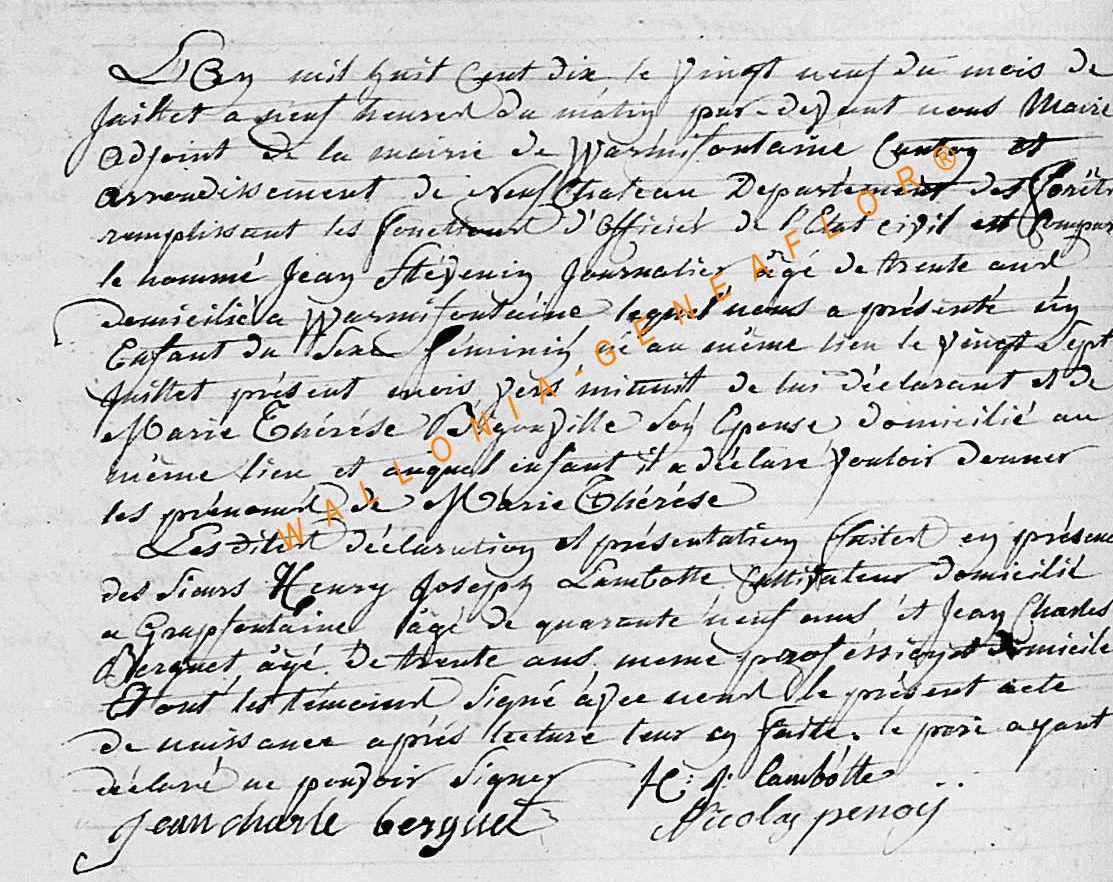 L'an mil huit cent dix le vingt neuf du mois de
Juillet a neuf heures du matin par-devant nous Maire
adjoint de la mairie de Warmifontaine Canton et
arrondissement de Neufchateau Departement des Forêts
remplissant les fonctions d'officier de l'Etat civil est Compar
le nommé Jean Stévenin Journalier âgé de trente ans
domicilié a Warmifontaine lequel nous a présenté un
Enfant du Sexe féminin né au même lieu le vingt Sept
Juillet présent mois vers minuit de lui déclarant et de
Marie Thérése Son Epouse domicilié au
même lieu et auquel enfant il a déclaré vouloir donner
les prénoms de Marie Thérése
Les dites déclaration et présentation faites en présence
des Sieurs Henry Joseph Lambotte Cultivateur domicilié
a Grapfontaine âgé de quarante neuf ans et Jean Charles
Berguet âgé de trente ans meme proféssion et domicile
Et ont les témoins Signé avec nous le présent acte
de naissance aprés lecture leur en faite. le pere ayant
déclaré ne pouvoir Signer H: J: Lambotte
Jean charle berguet Nicolas penoy
WALLONIA-GENEAFLOR®